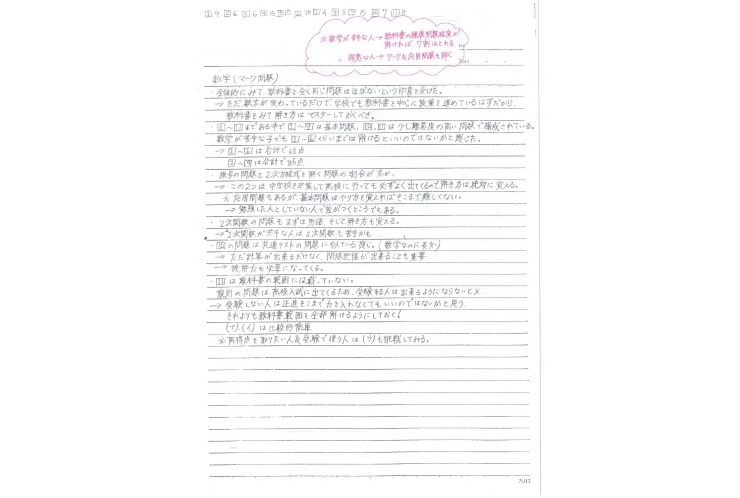 1 9 2 6 3 6 4 15 5 15 6 10 7 4 8 8 9 15 10 7 11 8
※数学が苦手な人→教科書の標準問題程度が
解ければ7割はとれる
得意な人→ワーク&応用問題も解く
数学(マーク問題)
・全体的にみて、教科書と全く同じ問題はほぼないという印象を受けた。
→ただ、数字が変わっているだけで、学校でも教科書を中心に授業を進めているはずだから、
教科書をみて解き方はマスターしておくべき。
まである中で は基本問題、 は少し難易度の高い問題で構成されている。
数学が苦手な子でも くらいまでは解けるといいのではないかと感じた。
は合計で 点
は合計で 点
・根号の問題と2次方程式を解く問題の割合が高い。
→この2つは中学校を卒業して高校に行っても必ずよく出てくるので解き方は絶対に覚える。
※応用問題もあるが、基本問題はやり方を覚えればそこまで難しくない。
→勉強した人としていない人で差がつくところでもある。
・2次関数の問題もまずは用語、そして解き方も覚える。
→2次関数が苦手な人は1次関数も苦手かも
の問題は共通テストの問題に似ている感じ。(数学なのに長文)
→ただ計算が出来るだけなく、問題把握が出来ることも重要
→読解力も必要になってくる。
は教科書の範囲には載っていない。
規則の問題は高校入試に出てくるため、受験する人は出来るようにならないと×
→受験しない人は正直そこまで力を入れなくてもいいのではないかと思う
それよりも教科書範囲を全部解けるようにしておく!
(ア)、(イ)は比較的簡単
※高得点を取りたい人&受験で使う人は(ウ)も挑戦してみる。